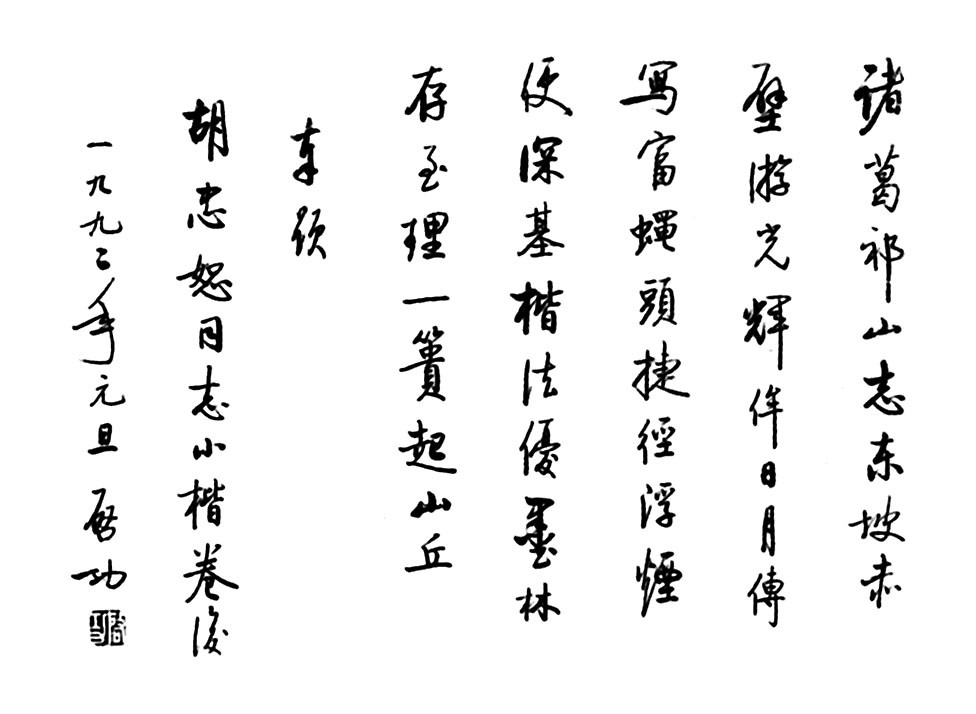 諸葛祁山志东坡赤
壁游光輝侔日月傳
寫富蠅頭捷徑浮煙
便深基楷法優墨林
存至理一簣起山丘
奉題
胡忠恕同志小楷卷後
一九九二年元旦 啓功